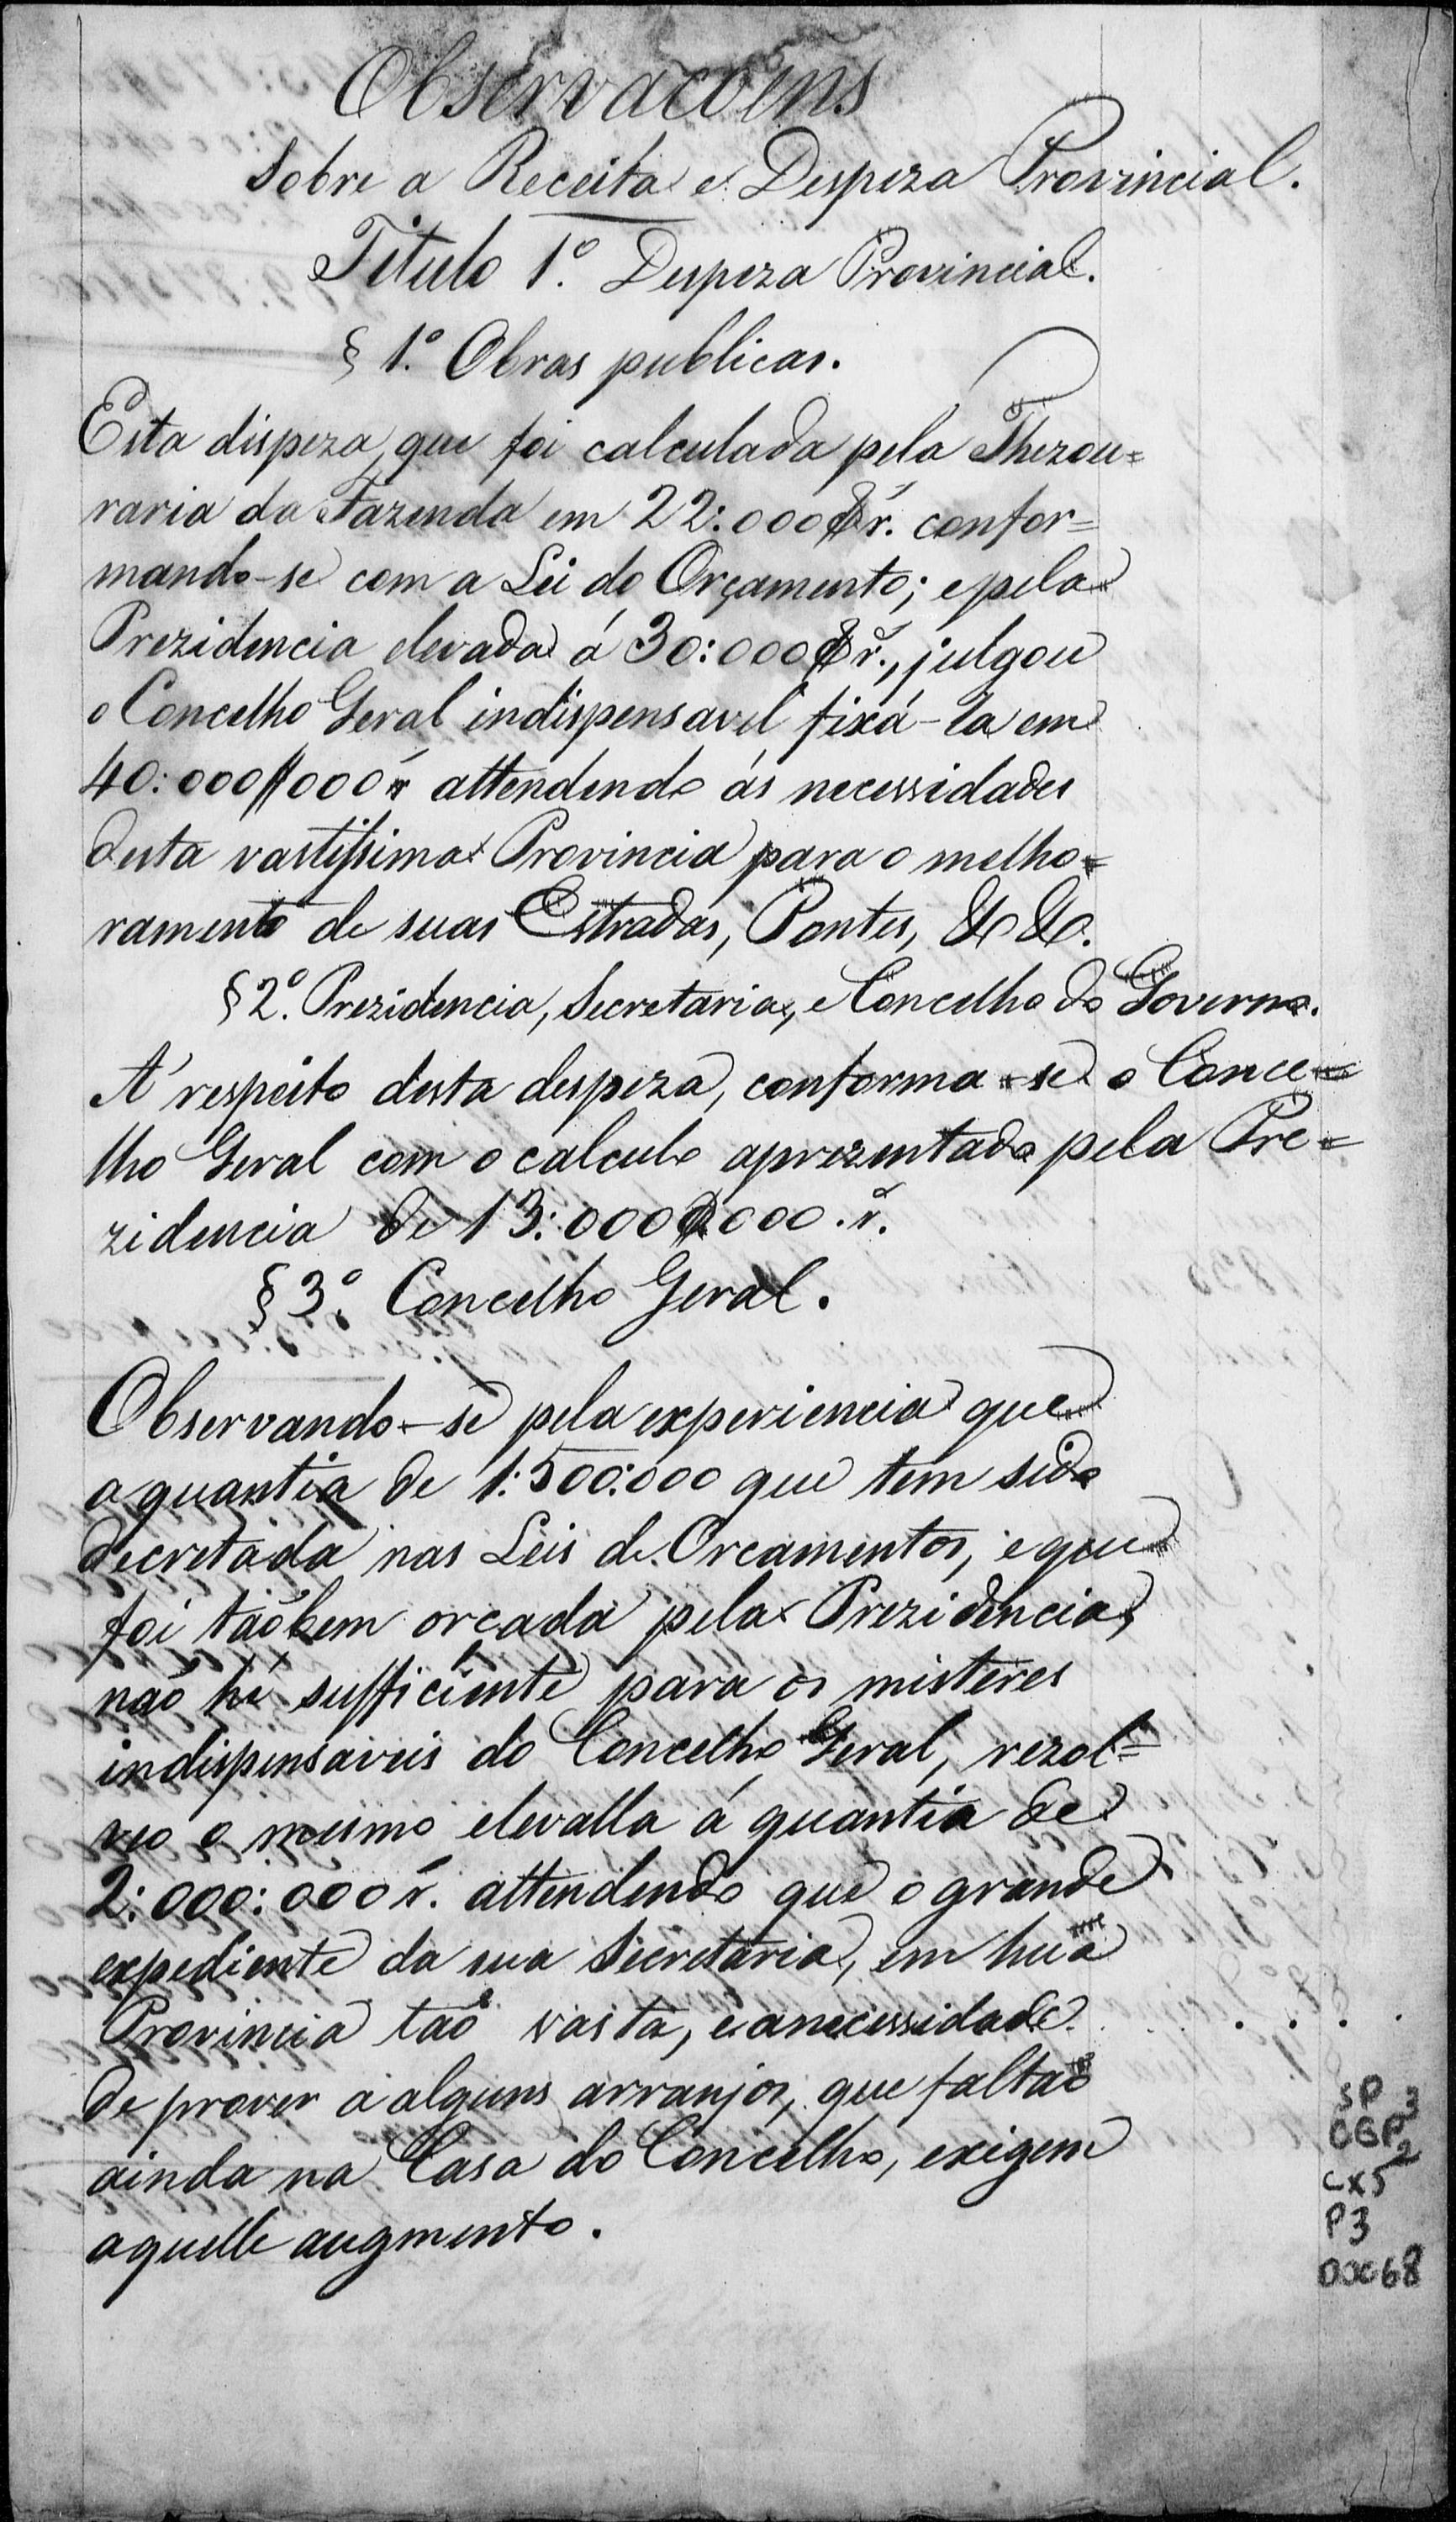 Observacoens
Sobre a Receita e Despeza Provincial.
Titulo 1º. Despeza Provincial.
§ 1º. Obras publicas.
Esta dispeza, que foi calculada pela Thezou=
raria da Fazenda em 22:000$ r. confor=
mando-se com a Lei do Orçamento; e pela
Prezidencia elevada á 30:000$ r., julgou
o Concelho Geral indispensavel fixá-la em
40:000$000 r attendendo ás necessidades
desta vastissima Provincia para o melho=
ramento de suas Estradas, Pontes, &c &c.
§ 2º. Prezidencia, Secretaria, e Concelho do Governo.
A' respeito desta despeza, conforma-se o Conce=
lho Geral com o calculo aprezentado pela Pre=
zidencia de 13:000$000. r.
§ 3º. Concelho Geral.
Observando-se pela experiencia que
a quantia de 1:500:000 que tem sido
decretada nas Leis de Orcamentos, e que
foi taõbem orcada pela Prezidencia,
naõ hé sufficiente para os misteres
indispensaveis do Concelho Geral, rezol=
veo o mesmo elevalla á quantia de
2:000:000 r. attendendo que o grande
expediente da sua Secretaria, em hũa
Provincia taõ vasta, e a necessidade
de prover a alguns arranjos, que faltaõ
ainda na Casa do Concelho, exigem
aquelle augmento.
SP
CGP3
2
CX5
P3
00068